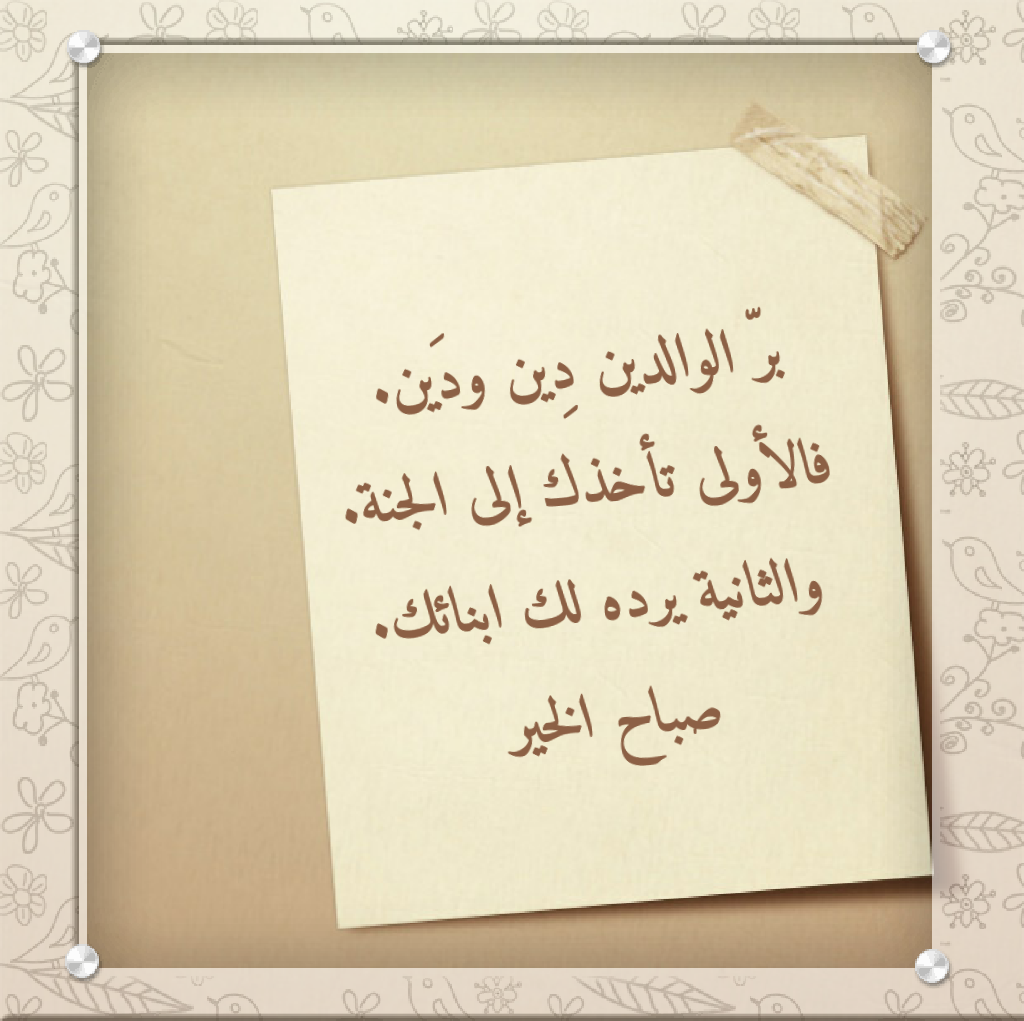 برّ الوالدين دِين ودَين.
فالأولى تأخذك إلى الجنة.
والثانية يرده لك ابنائك.
صباح الخير